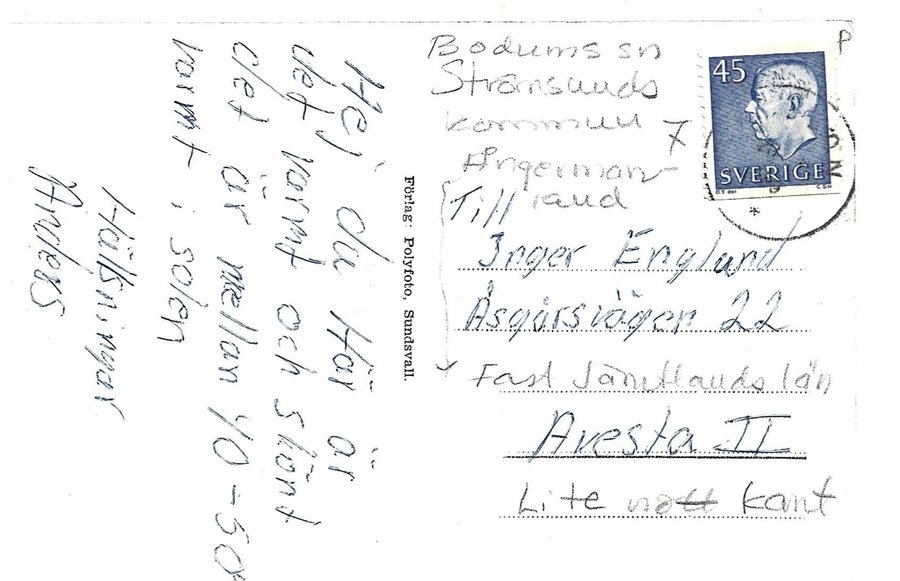 Hej du Här är
det varmt och skönt
det är mellan 40-50
varmt i solen
Hälsningar
Anders
Förlag: Polyfoto, Sundsvall.
Bodums sn
Strömsunds
kommun
Ångerman-
land
7
P
45
SVERIGE
Till
Inger Englund
Åsgårsvägen 22
Fast Jämtlands län
Avesta II
Lite nött kant